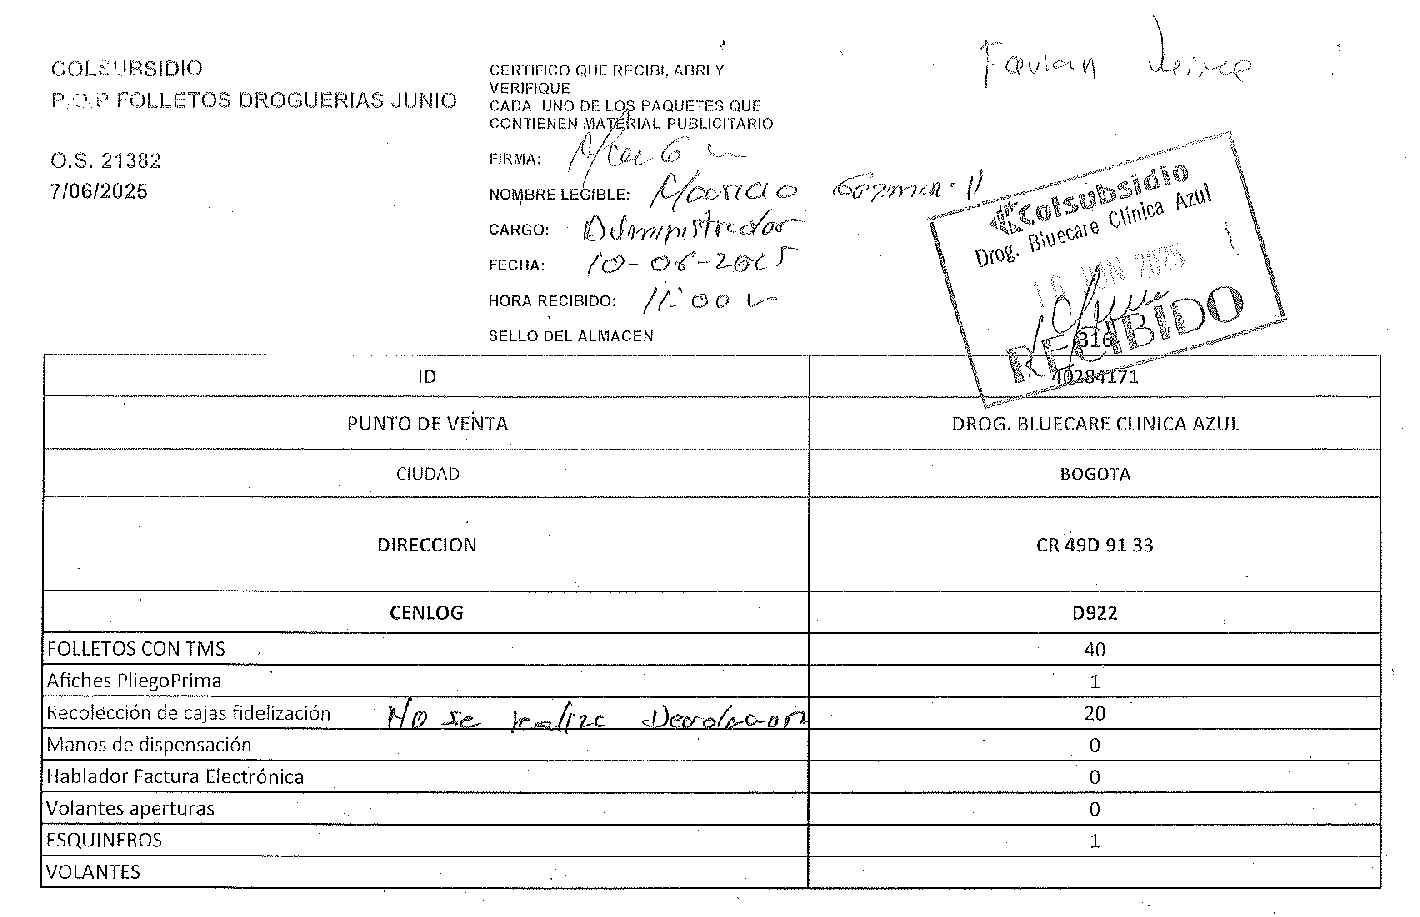 COLSUBSIDIO
P.O.P FOLLETOS DROGUERIAS JUNIO
O.S. 21382
7/06/2025
CERTIFICO QUE RECIBI, ABRI Y
VERIFIQUE
CADA UNO DE LOS PAQUETES QUE
CONTIENEN MATERIAL PUBLICITARIO
FIRMA:
NOMBRE LEGIBLE: Mauricio Guzman
CARGO: Administrador
FECHA: 10-06-2025
HORA RECIBIDO: 11:00
SELLO DEL ALMACEN
Favian
Colsubsidio
Drog. Bluecare Clínica Azul
10 JUN 2025
RECIBIDO
316
ID 40284171
PUNTO DE VENTA DROG. BLUECARE CLINICA AZUL
CIUDAD BOGOTA
DIRECCION CR 49D 91 33
CENLOG D922
FOLLETOS CON TMS 40
Afiches PliegoPrima 1
Recolección de cajas fidelización No se realizo Devolucion 20
Manos de dispensación 0
Hablador Factura Electrónica 0
Volantes aperturas 0
ESQUINEROS 1
VOLANTES